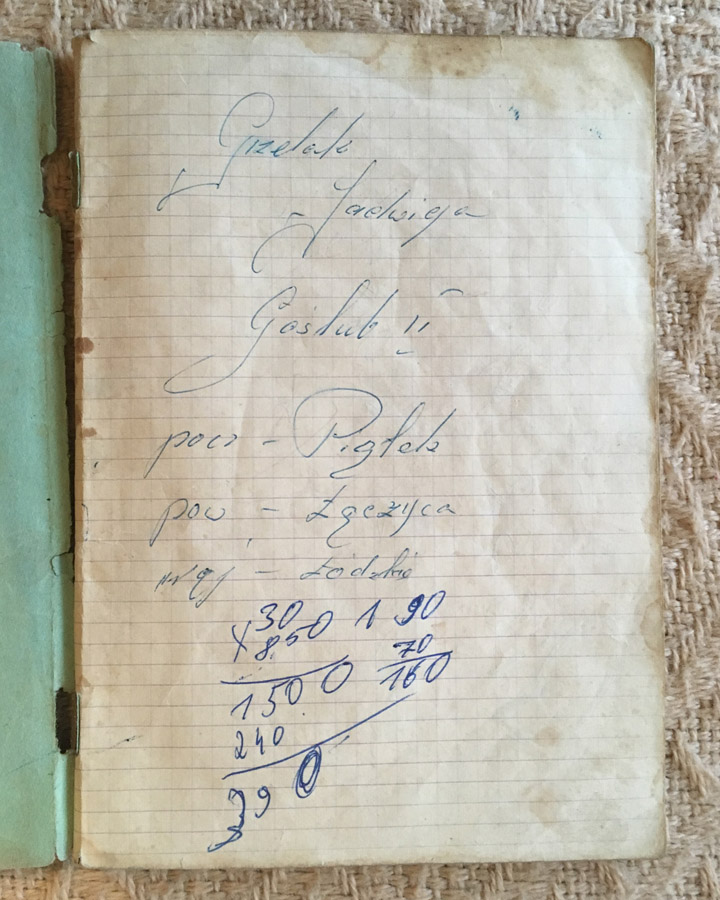 Grzelak
Jadwiga
Goślub II
pow - Piątek
pow - Łęczyca
woj - Łódzkie
30 1 90
x 8.50 70
150 0 160
240
39 0